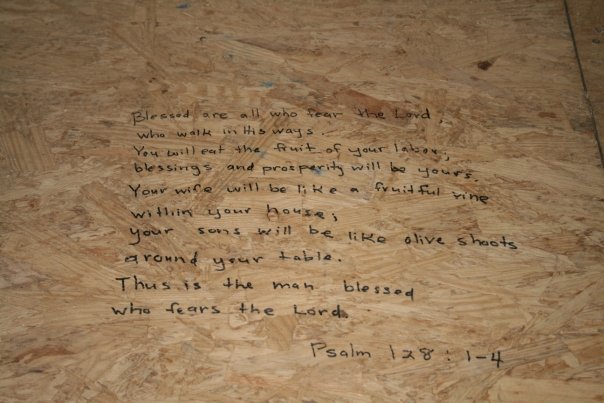 Blessed are all who fear the Lord,
who walk in His ways.
You will eat the fruit of your labor;
blessings and prosperity will be yours.
Your wife will be like a fruitful vine
within your house;
your sons will be like olive shoots
around your table.
Thus is the man blessed
who fears the Lord.
Psalm 128:1-4